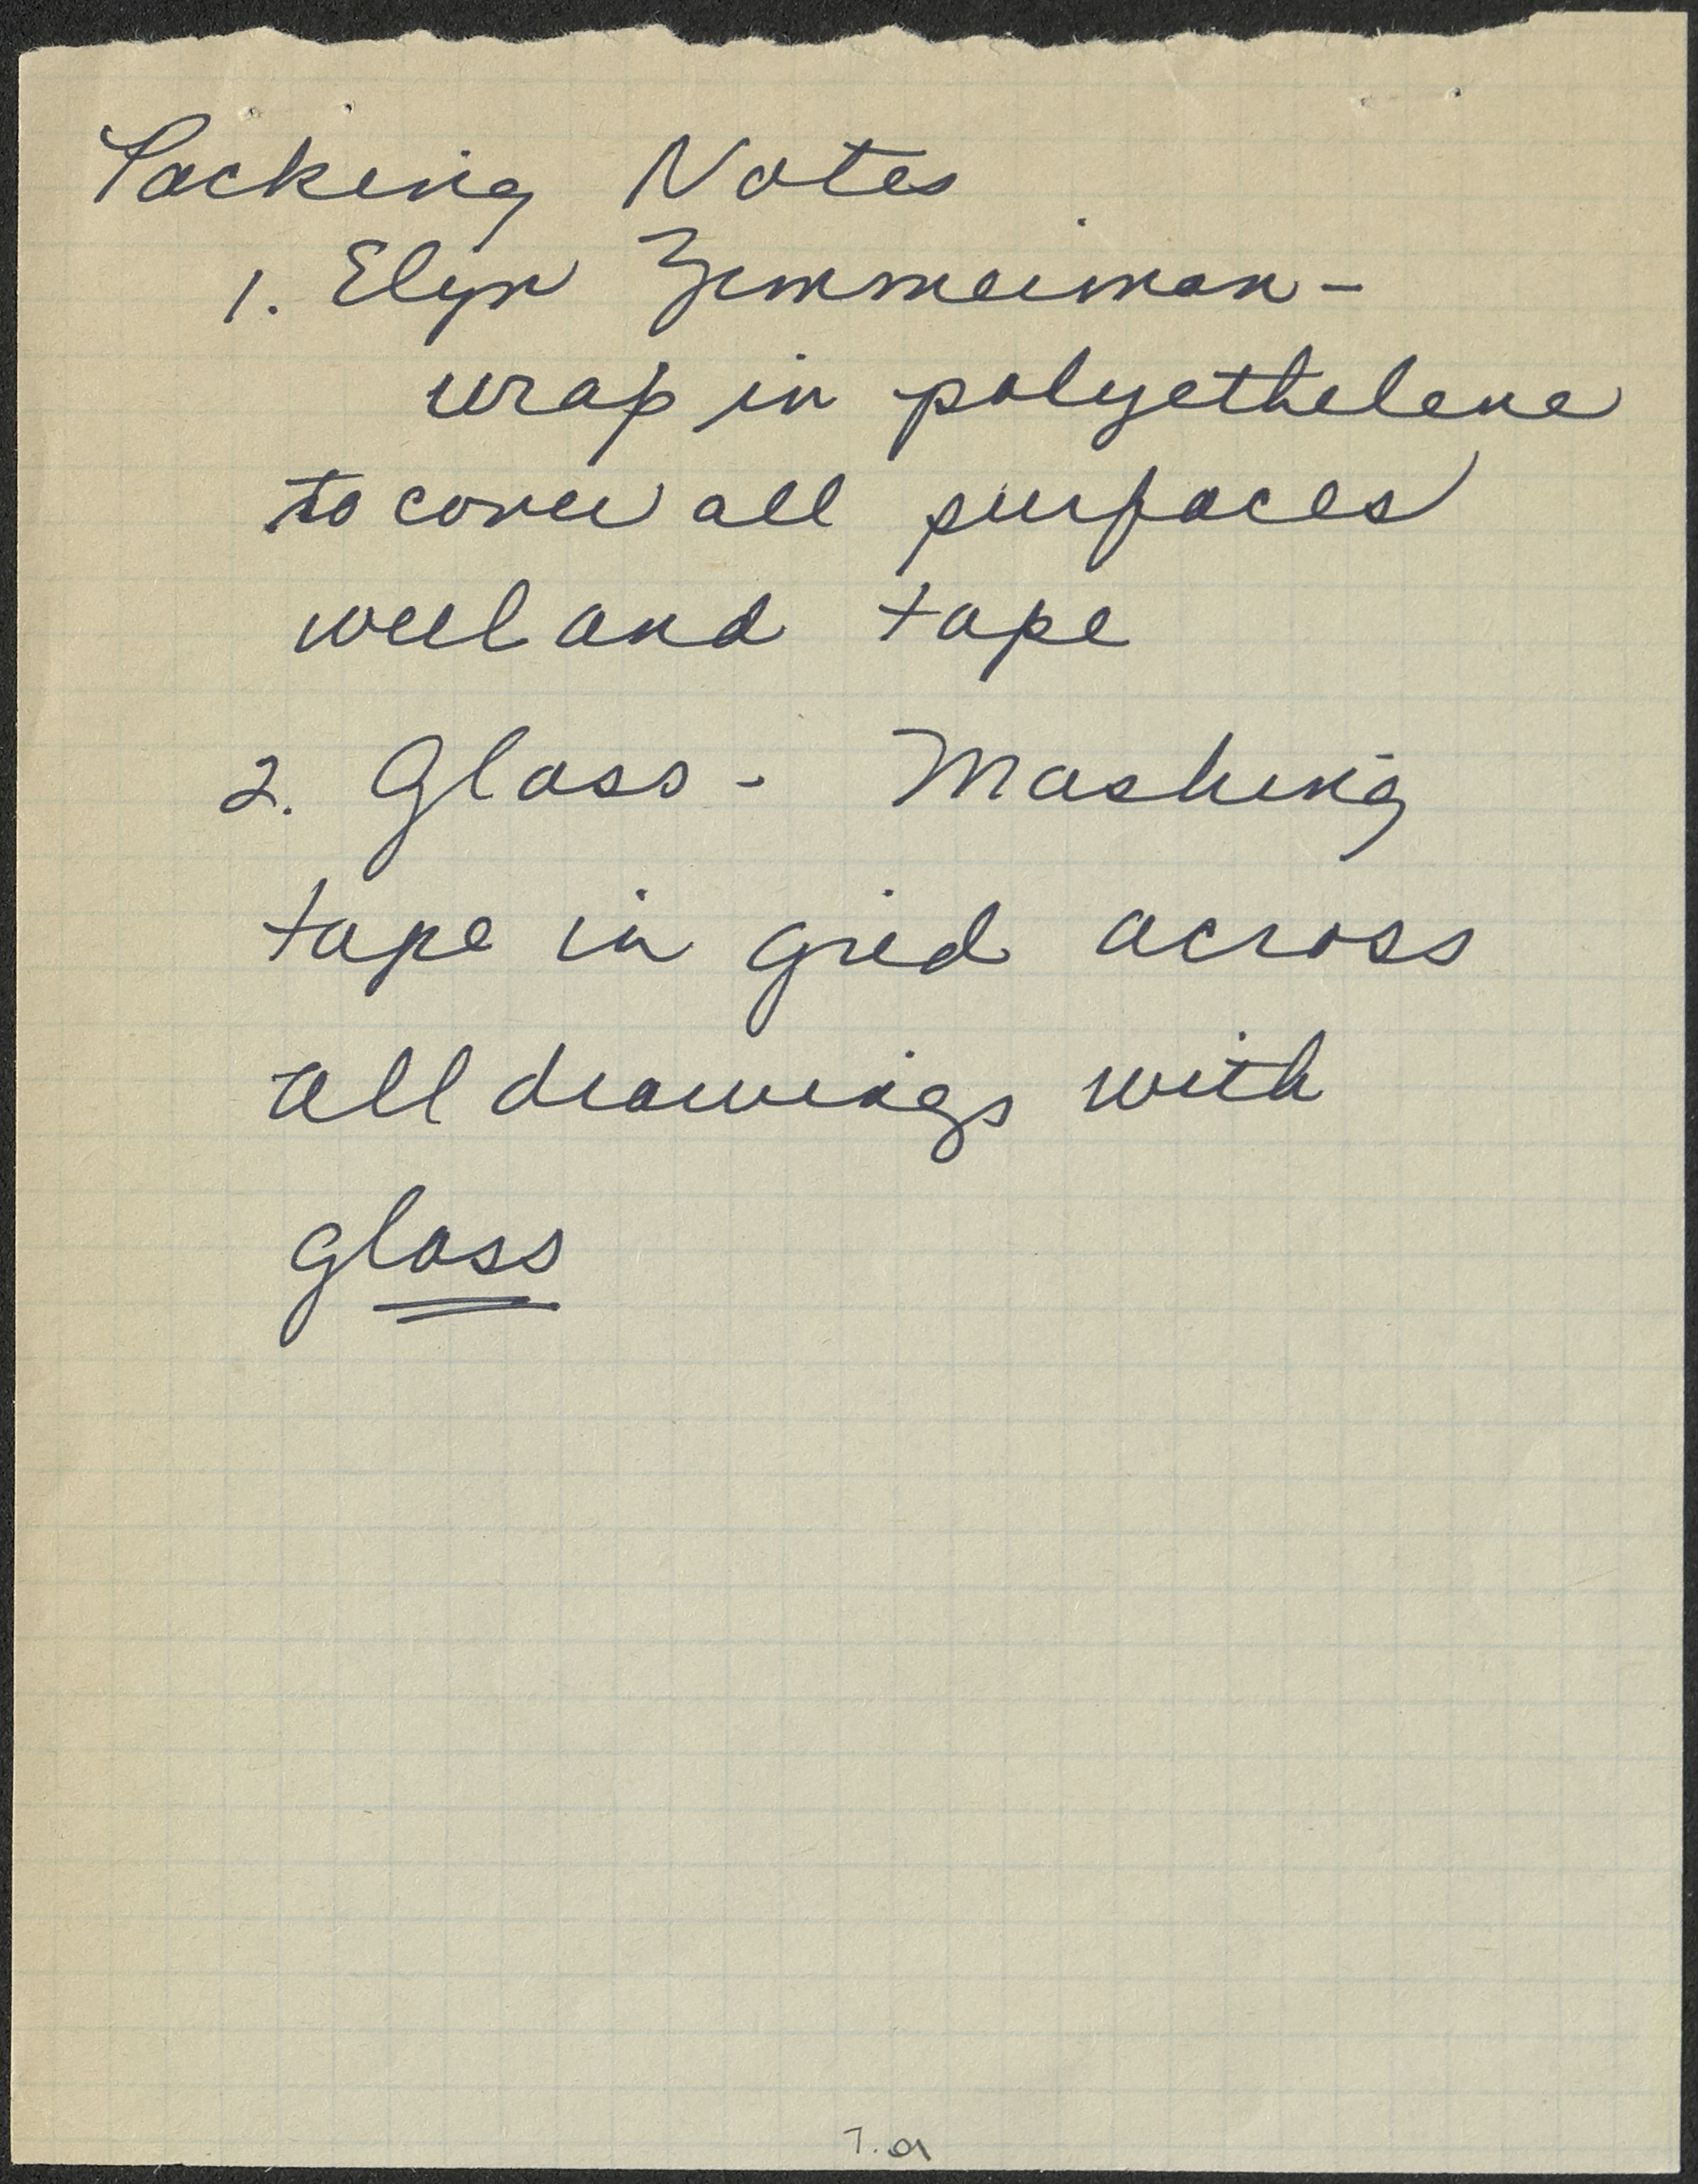 Packing Notes
1. Elyn Zimmerman -
wrap in polyethelene
to cover all surfaces
well and tape
2. Glass - Masking
tape in grid across
all drawings with
glass